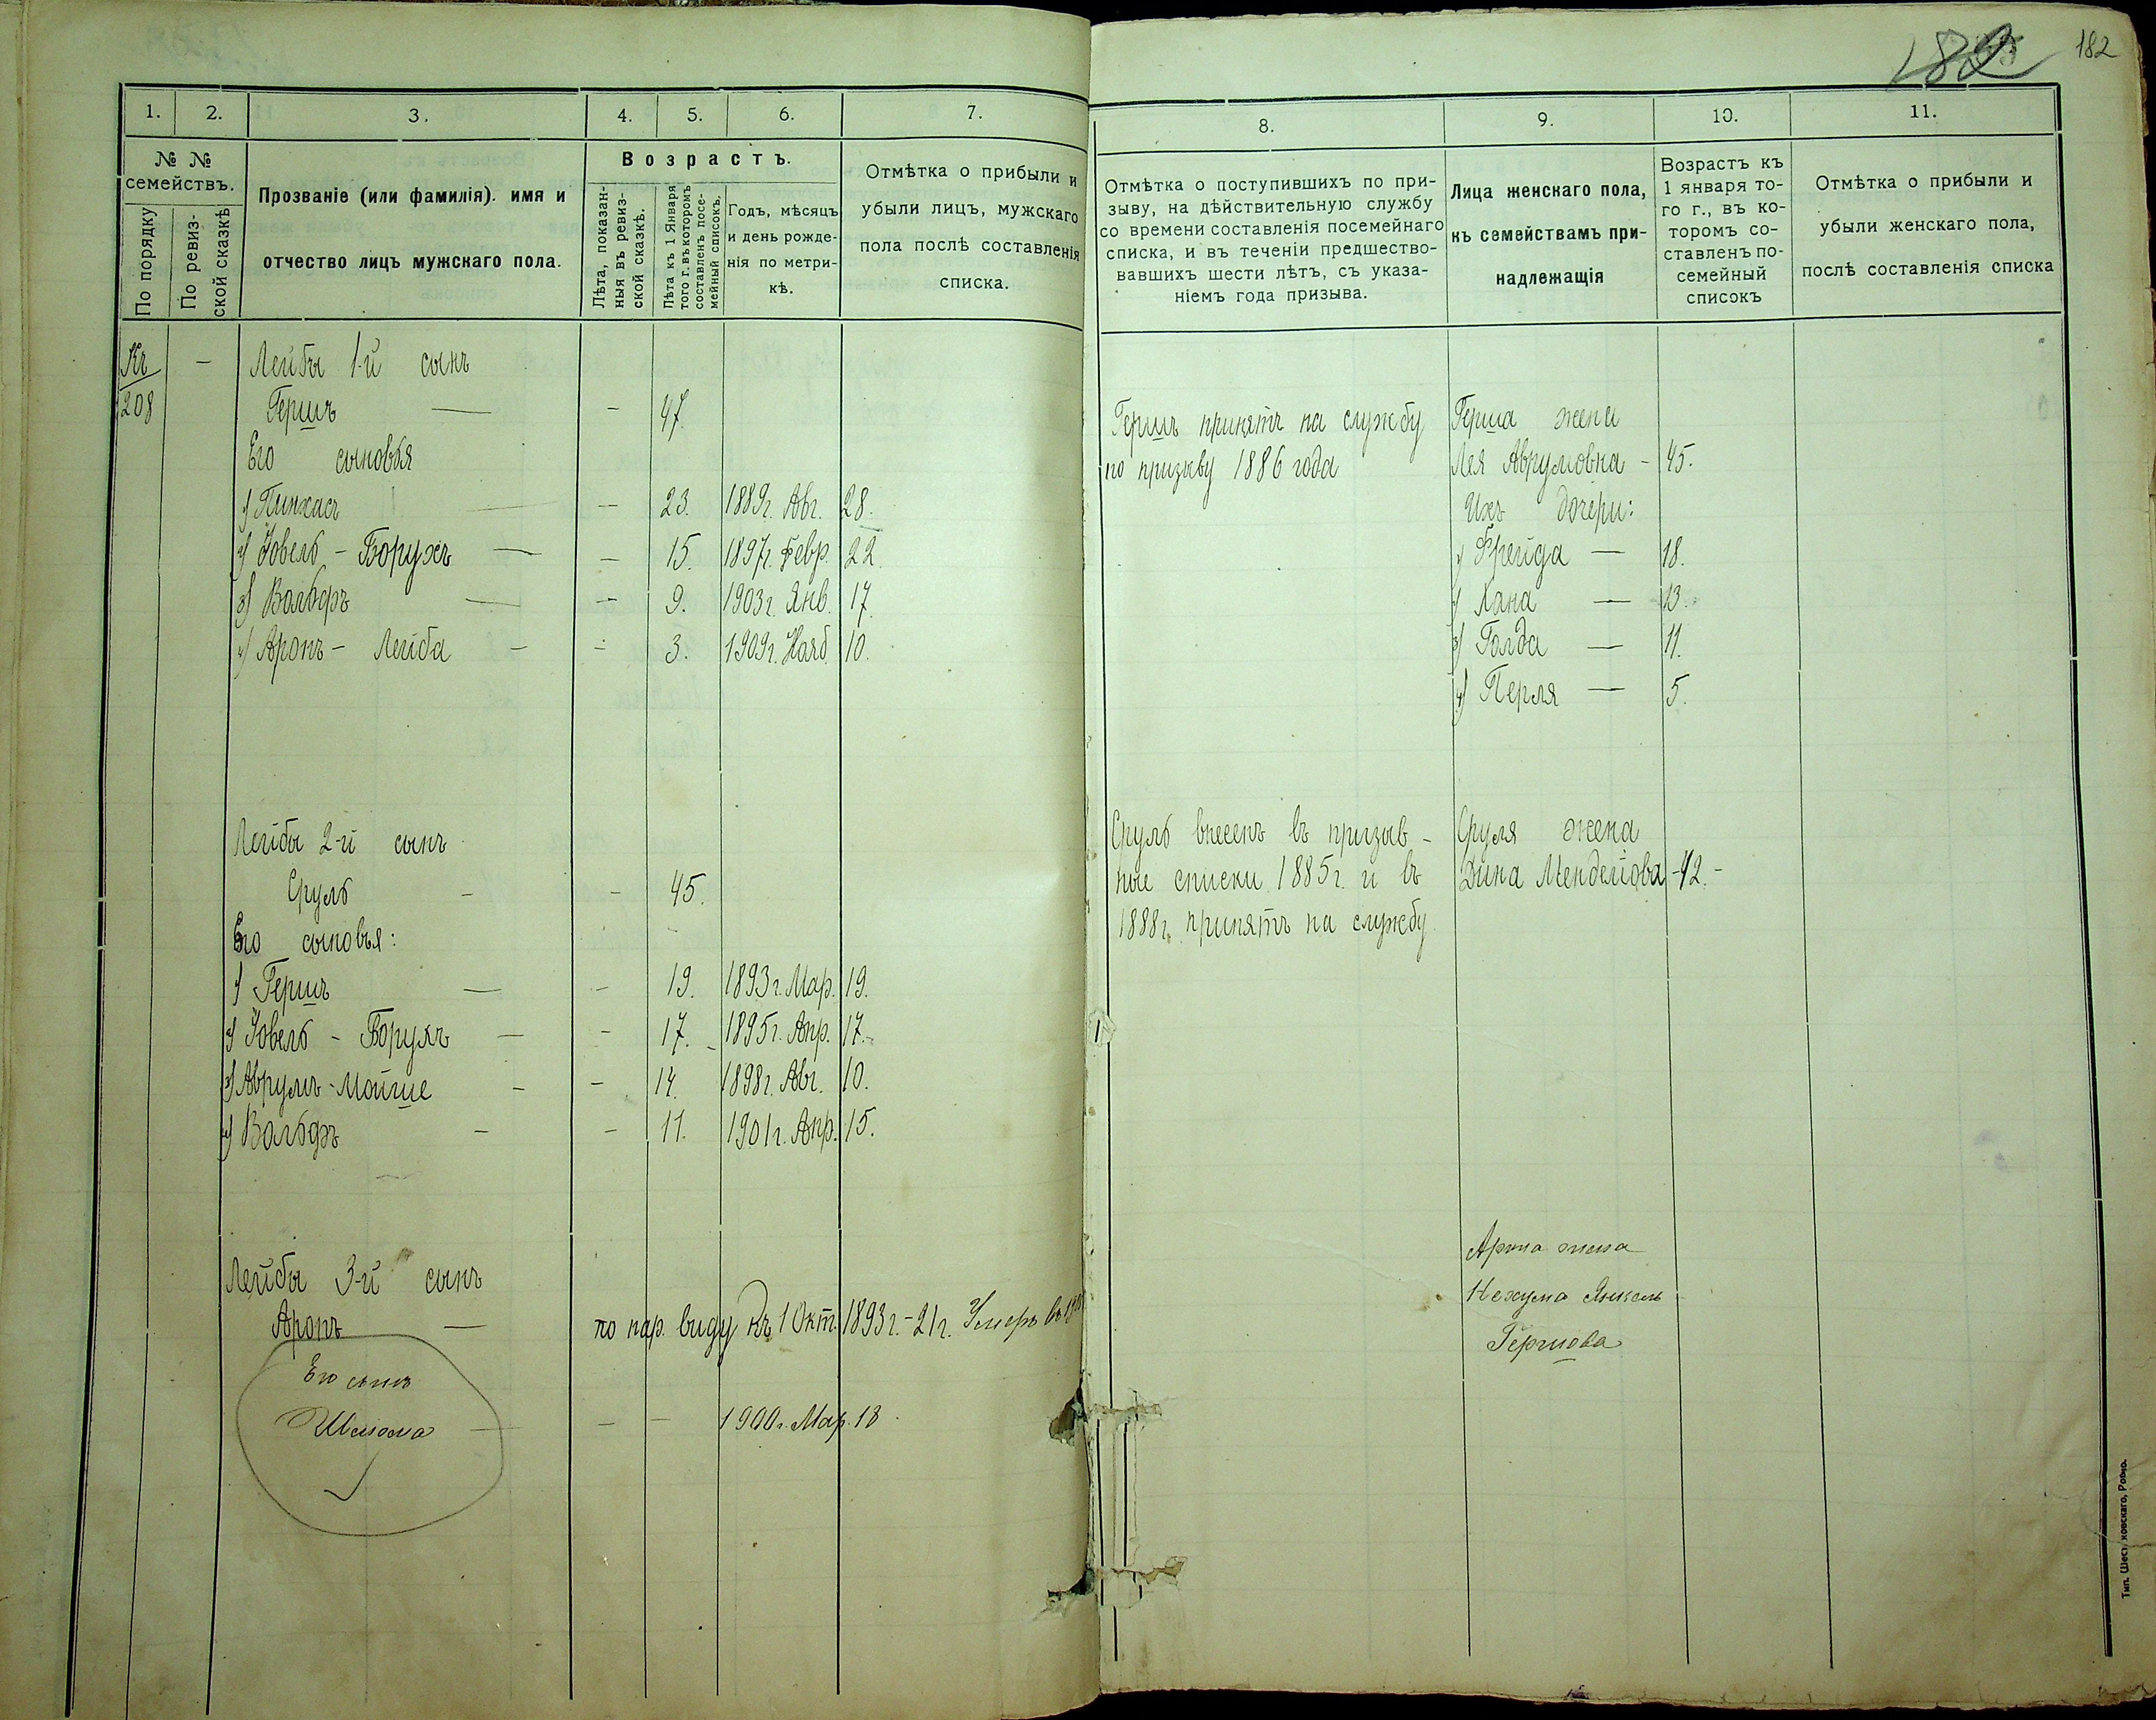 182
1. 2. 3. 4. 5. 6. 7.
№ №
семействъ.
По порядку
По ревиз-
ской сказкѣ
Прозваніе (или фамилія). имя и
отчество лицъ мужскаго пола.
Возрастъ.
Лѣта, показан-
ныя въ ревиз-
ской сказкѣ.
Лѣта къ 1 Января
того г. въ которомъ
составленъ посе-
мейный списокъ.
Годъ, мѣсяцъ
и день рожде-
нія по метри-
кѣ.
Отмѣтка о прибыли и
убыли лицъ, мужскаго
пола послѣ составленія
списка.
Къ — Лейбы 1-й сынъ
208 Гершъ — — 47.
Его сыновья
1) Пинхасъ — — 23. 1889г. Авг. 28.
2) Іовель - Борухъ — — 15. 1897г. Февр. 22.
3) Вольфъ — — 9. 1903г. Янв. 17.
4) Аронъ - Лейба — - 3. 1909г. Нояб. 10.
Лейбы 2-й сынъ
Сруль - - 45.
Его сыновья:
1) Гершъ — - 19. 1893г. Мар. 19.
2) Іовель - Борухъ — - 17. 1895г. Апр. 17.
3) Аврумъ - Мойше - - 14. 1898г. Авг. 10.
4) Вольфъ - - 11. 1901г. Апр. 15.
Лейбы 3-й сынъ
Аронъ — по нар. виду къ 1 Окт. 1893г. - 21г. Умеръ въ
Его сынъ
Шлиома — — — 1900г. Мар. 18.
8. 9. 10. 11.
Отмѣтка о поступившихъ по при-
зыву, на дѣйствительную службу
со времени составленія посемейнаго
списка, и въ теченіи предшество-
вавшихъ шести лѣтъ, съ указа-
ніемъ года призыва.
Лица женскаго пола,
къ семействамъ при-
надлежащія
Возрастъ къ
1 января то-
го г., въ ко-
торомъ со-
ставленъ по-
семейный
списокъ
Отмѣтка о прибыли и
убыли женскаго пола,
послѣ составленія списка
Гершъ принятъ на службу Герша жена
по призыву 1886 года Лея Аврумовна - 45.
Ихъ дочери:
1) Фрейда — 18.
2) Хана — 13.
3) Голда — 11.
4) Перля — 5.
Сруль внесенъ въ призыв- Сруля жена
ные списки 1885г. и въ Дина Менделіова - 42. -
1888г. принятъ на службу
Арона жена
Нехума Янкель
Гершова
Тип. Шестаковскаго, Ровно.